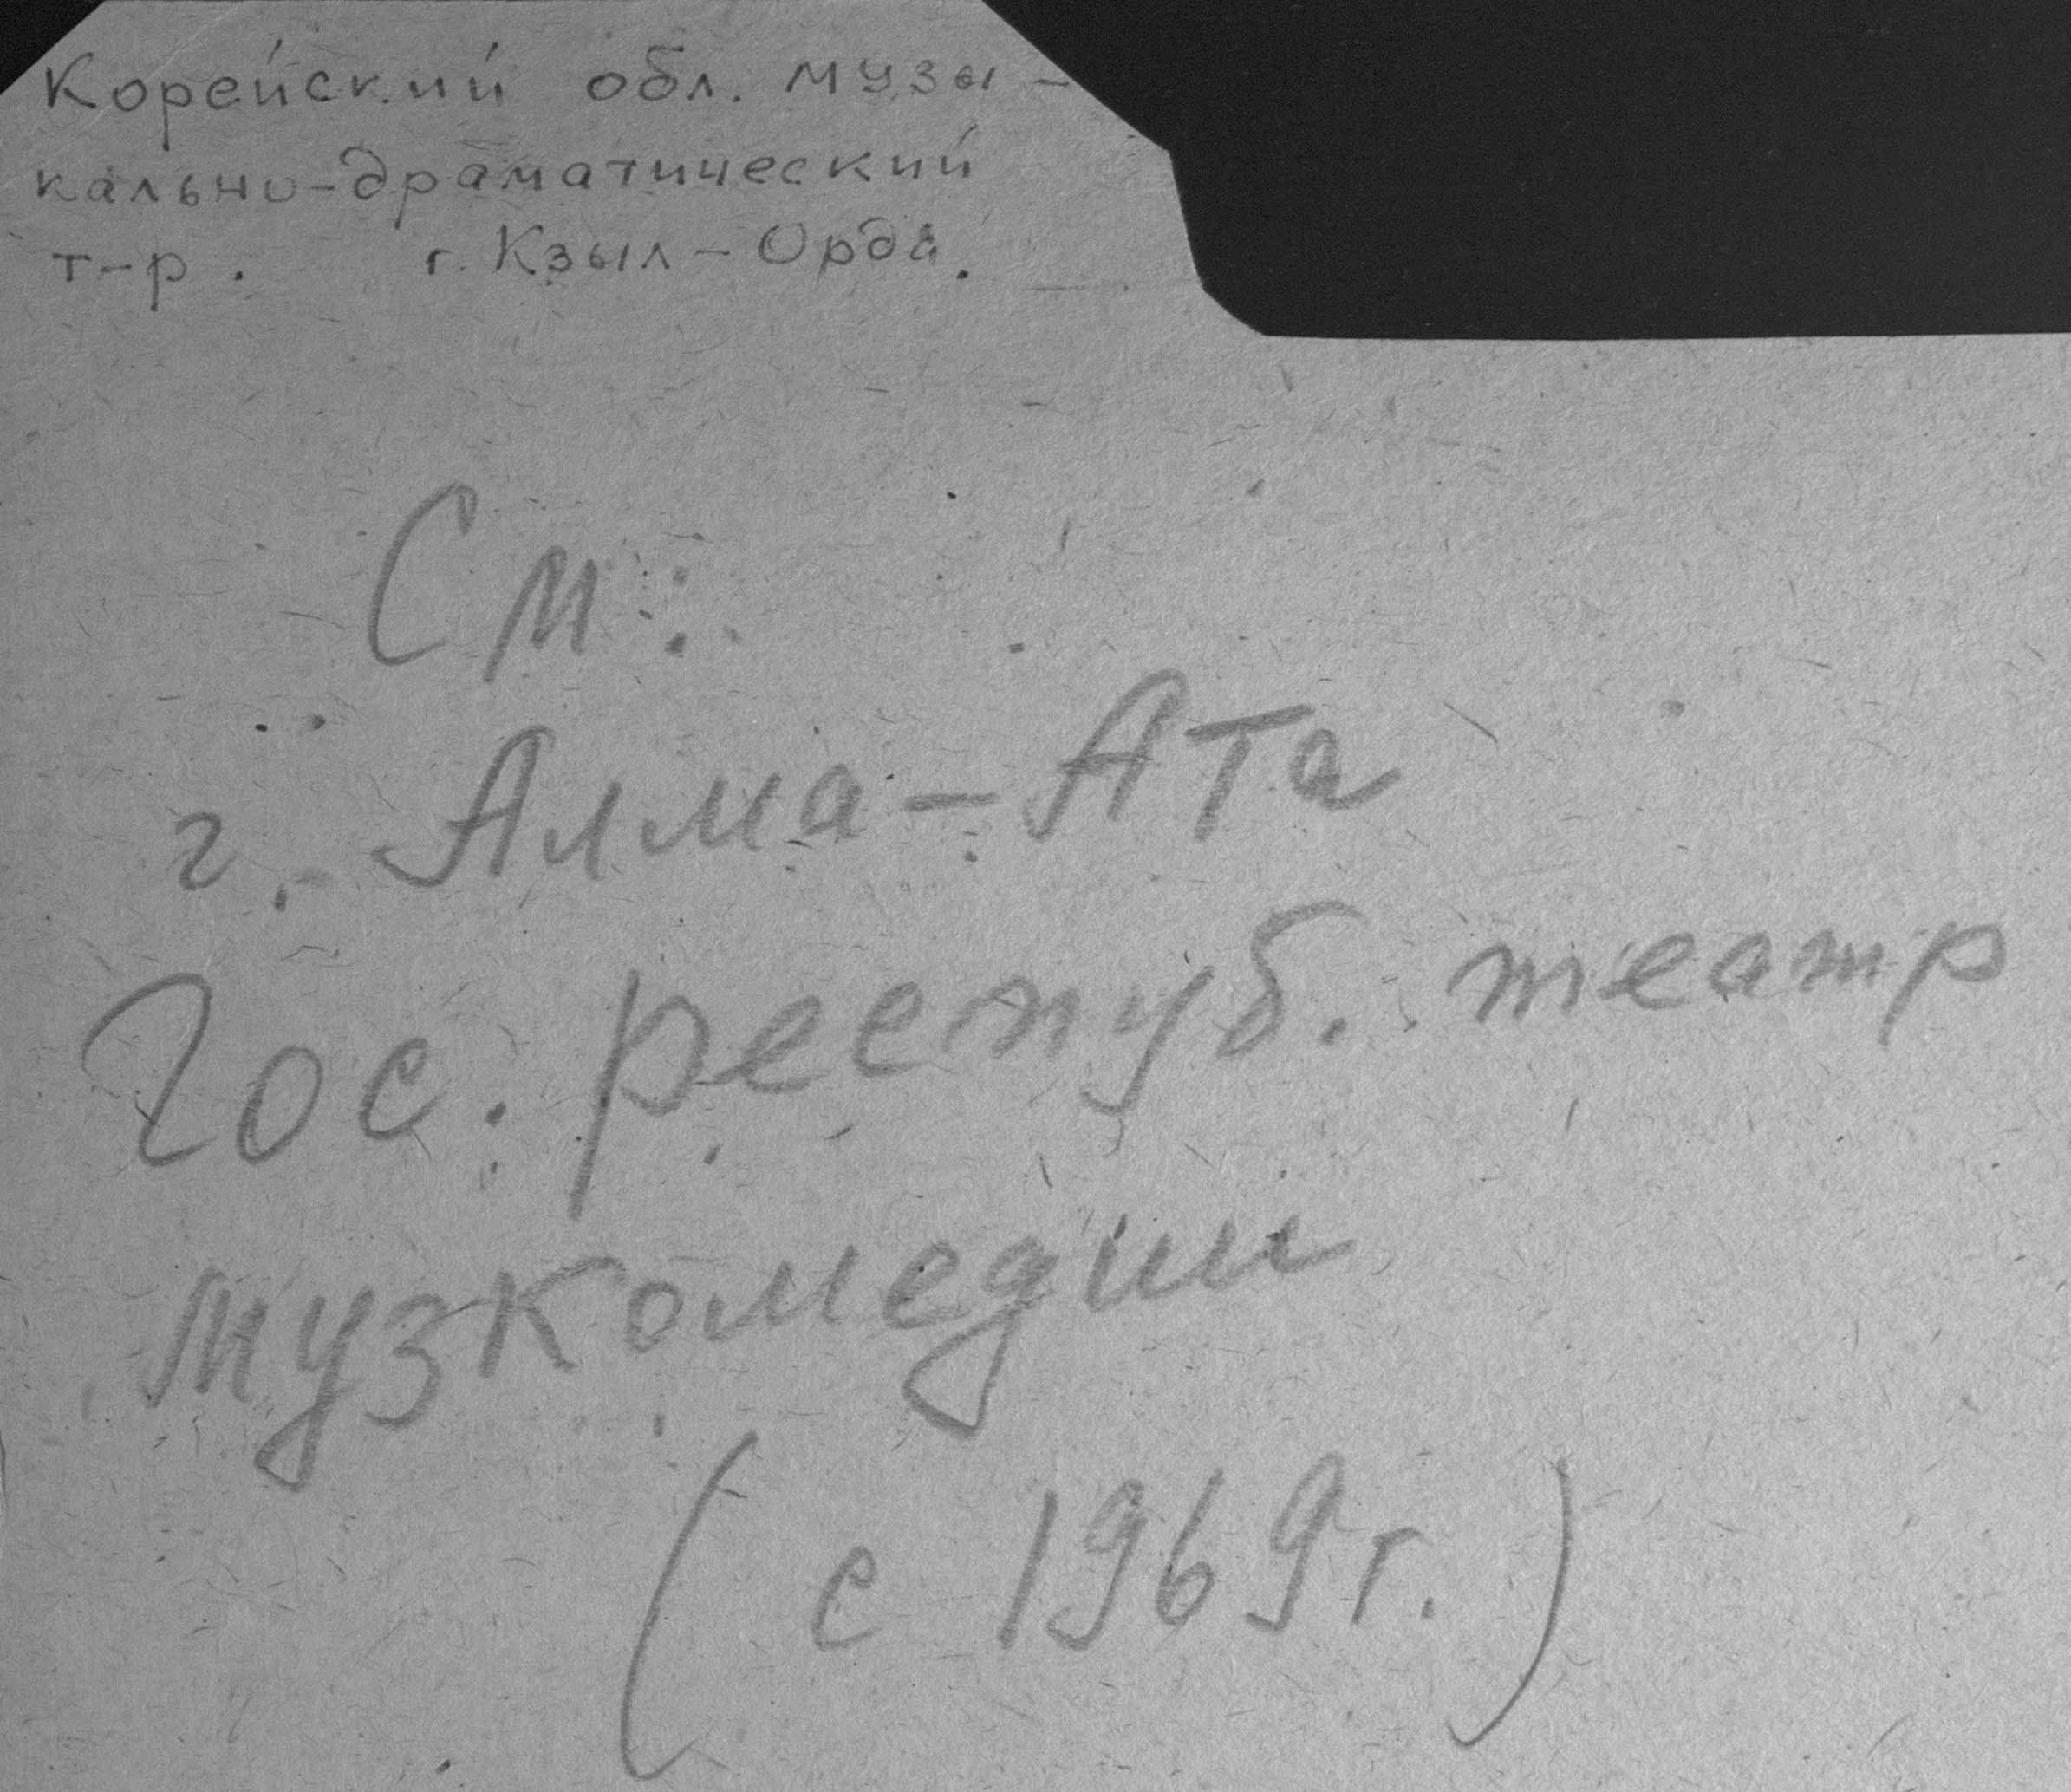 Корейский обл. музы-
кально-драматический
т-р. г. Кзыл-Орда.
См:
г. Алма-Ата
Гос. респуб. театр
музкомедии
(с 1969г.)